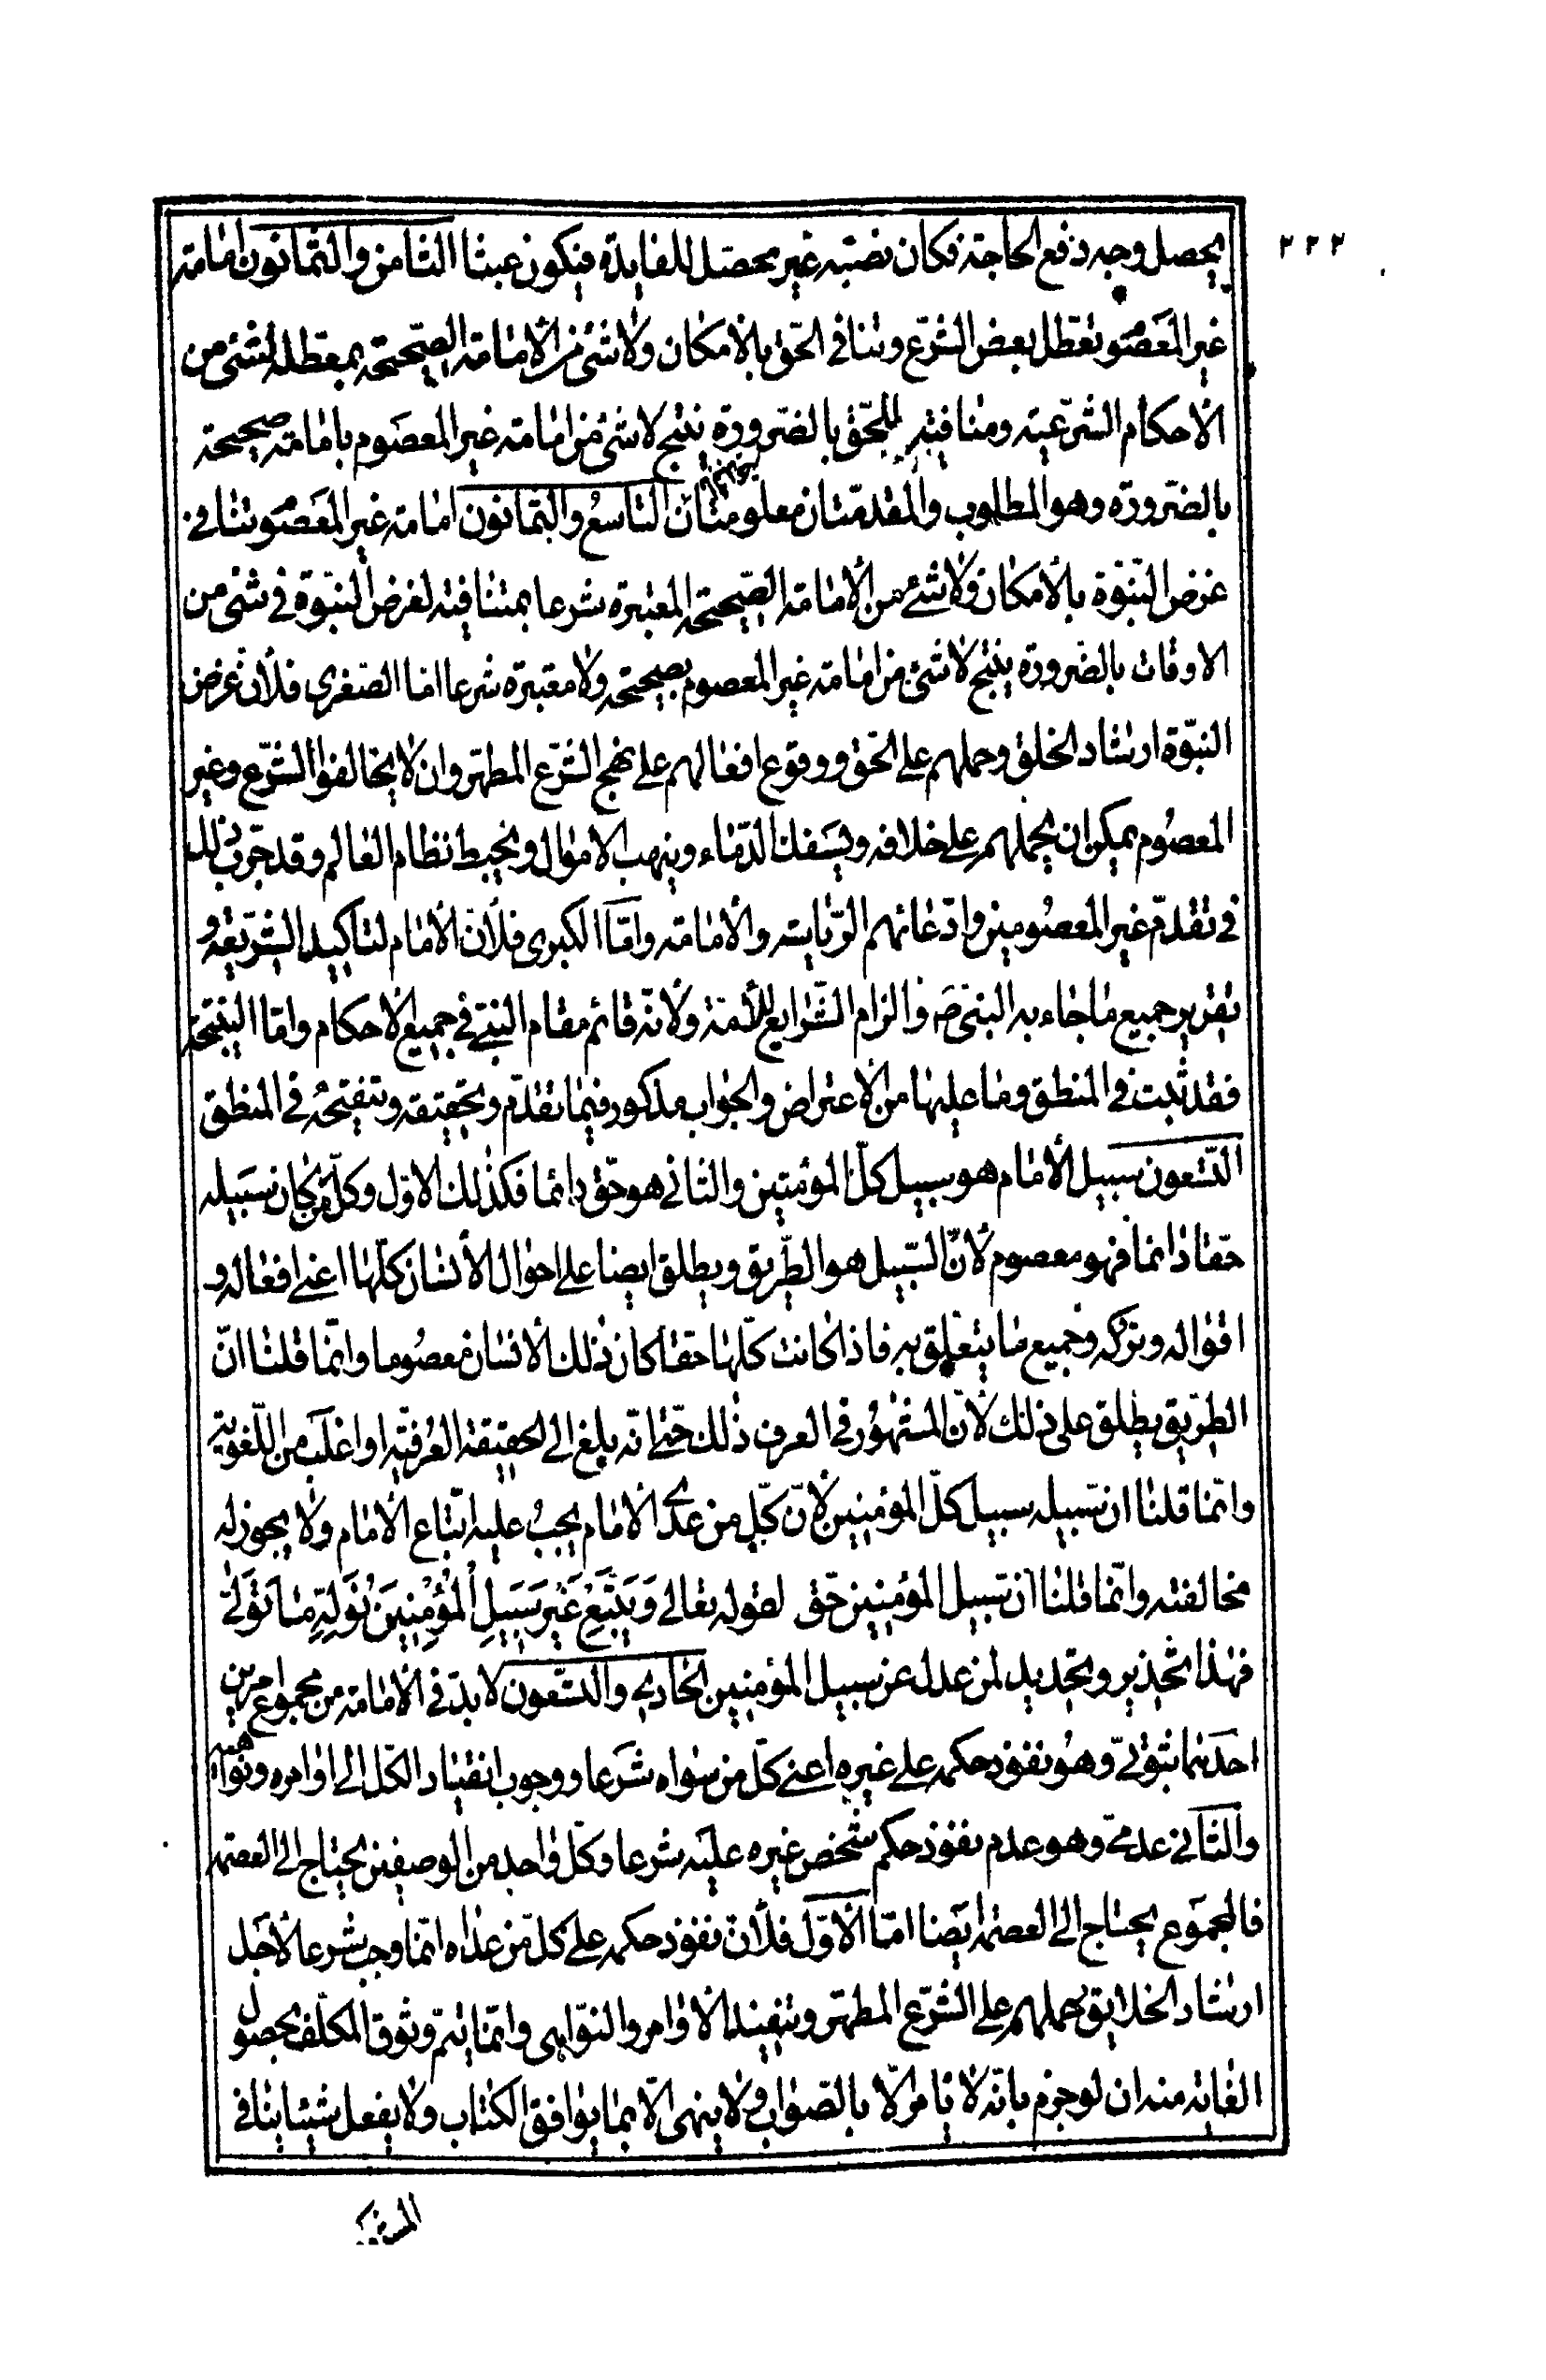 ٢٢٢
يحصل وجه دفع الحاجة فكان نصبه غير محصّل للفايدة فيكون عبثا الثامن والثمانون امامة
غير المعصو تعطل بعض الشرع وتنافى الحق بالامكان ولا شئ من الامامة الصحيحة بمعطلة لشئ من
الاحكام الشرعية ومنافية للحق بالضرورة ينتج لا شئ من امامة غير المعصوم بامامة صحيحة
بالضرورة وهو المطلوب والمقدمتان معلومتان التاسع والثمانون امامة غير المعصو تنافى
غرض النبوة بالامكان ولا شئ من الامامة الصحيحة المعتبرة شرعا بمتنافية لغرض النبوة فى شئ من
الاوقات بالضرورة ينتج لا شئ من امامة غير المعصوم بصحيحة ولا معتبرة شرعا اما الصغرى فلان غرض
النبوة ارشاد الخلق وحملهم على الحق ووقوع افعالهم على نهج الشرع المطهر وان لا يخالفوا الشرع وغير
المعصوم يمكن ان يحملهم على خلافه ويسفك الدماء وينهب الاموال ويخبط نظام العالم وقد جرّب ذلك
فى تقدّم غير المعصومين وادّعائهم الرياسة والامامة وامّا الكبرى فلانّ الامام لتاكيد الشريعة و
تقرير جميع ما جاء به النبىّ ص والزام الشرايع للأمة ولانّه قائم مقام النبىّ فى جميع الاحكام وامّا النتيجة
فقد ثبت فى المنطق وما عليها من الاعتراض والجواب مذكور فيما تقدّم وتحقيقه وتنقيحه فى المنطق
التسعون سبيل الأمام هو سبيل كلّ المؤمنين والثانى هو حق دائما فكذلك الاوّل وكلّ من كان سبيله
حقّا دائما فهو معصوم لأنّ السّبيل هو الطّريق ويطلق ايضا على احوال الأنسان كلّها اعنى افعاله و
اقواله وتركه وجميع ما يتعلق به فاذا كانت كلّها حقّا كان ذلك الانسان معصوما وانّما قلنا انّ
الطريق يطلق على ذلك لأنّ المشهور فى العرف ذلك حتى انّه بلغ الى الحقيقة العرفيّة او اغلب من اللّغوية
وانّما قلنا ان سبيله سبيل كلّ المؤمنين لأنّ كلّ من عدى الامام يجب عليه اتّباع الامام ولا يجوز له
مخالفته وانّما قلنا ان سبيل المؤمنين حقّ لقوله تعالى وَيَتَّبِعْ غَيْرَ سَبِيلِ الْمُؤْمِنِينَ نُوَلِّهِ مَا تَوَلّى
فهذا تحذير وتحديد لمن عدل عن سبيل المؤمنين الحادى والتسعون لا بدّ فى الامامة من مجموع امرين
احدهما ثبوتىّ وهو نفوذ حكمه على غيره اعنى كلّ من سواه شرعا ووجوب انقياد الكلّ الى اوامره ونواهيه
والثانى عدمىّ وهو عدم نفوذ حكم شخص غيره عليه شرعا وكلّ واحد من الوصفين يحتاج الى العصمة
فالمجموع يحتاج الى العصمة ايضا امّا الاوّل فلأنّ نفوذ حكمه على كلّ من عداه انّما وجب شرعا لأجل
ارشاد الخلايق بحملهم على الشرّع المطهّر وتنفيذ الاوامر والنّواهى وانّما يتمّ وثوق المكلّف بحصول
الغاية منه ان لو جزم بانّه لا يامر الّا بالصّواب ولا ينهى الّا بما يوافق الكتاب ولا يفعل شيئا ينافى